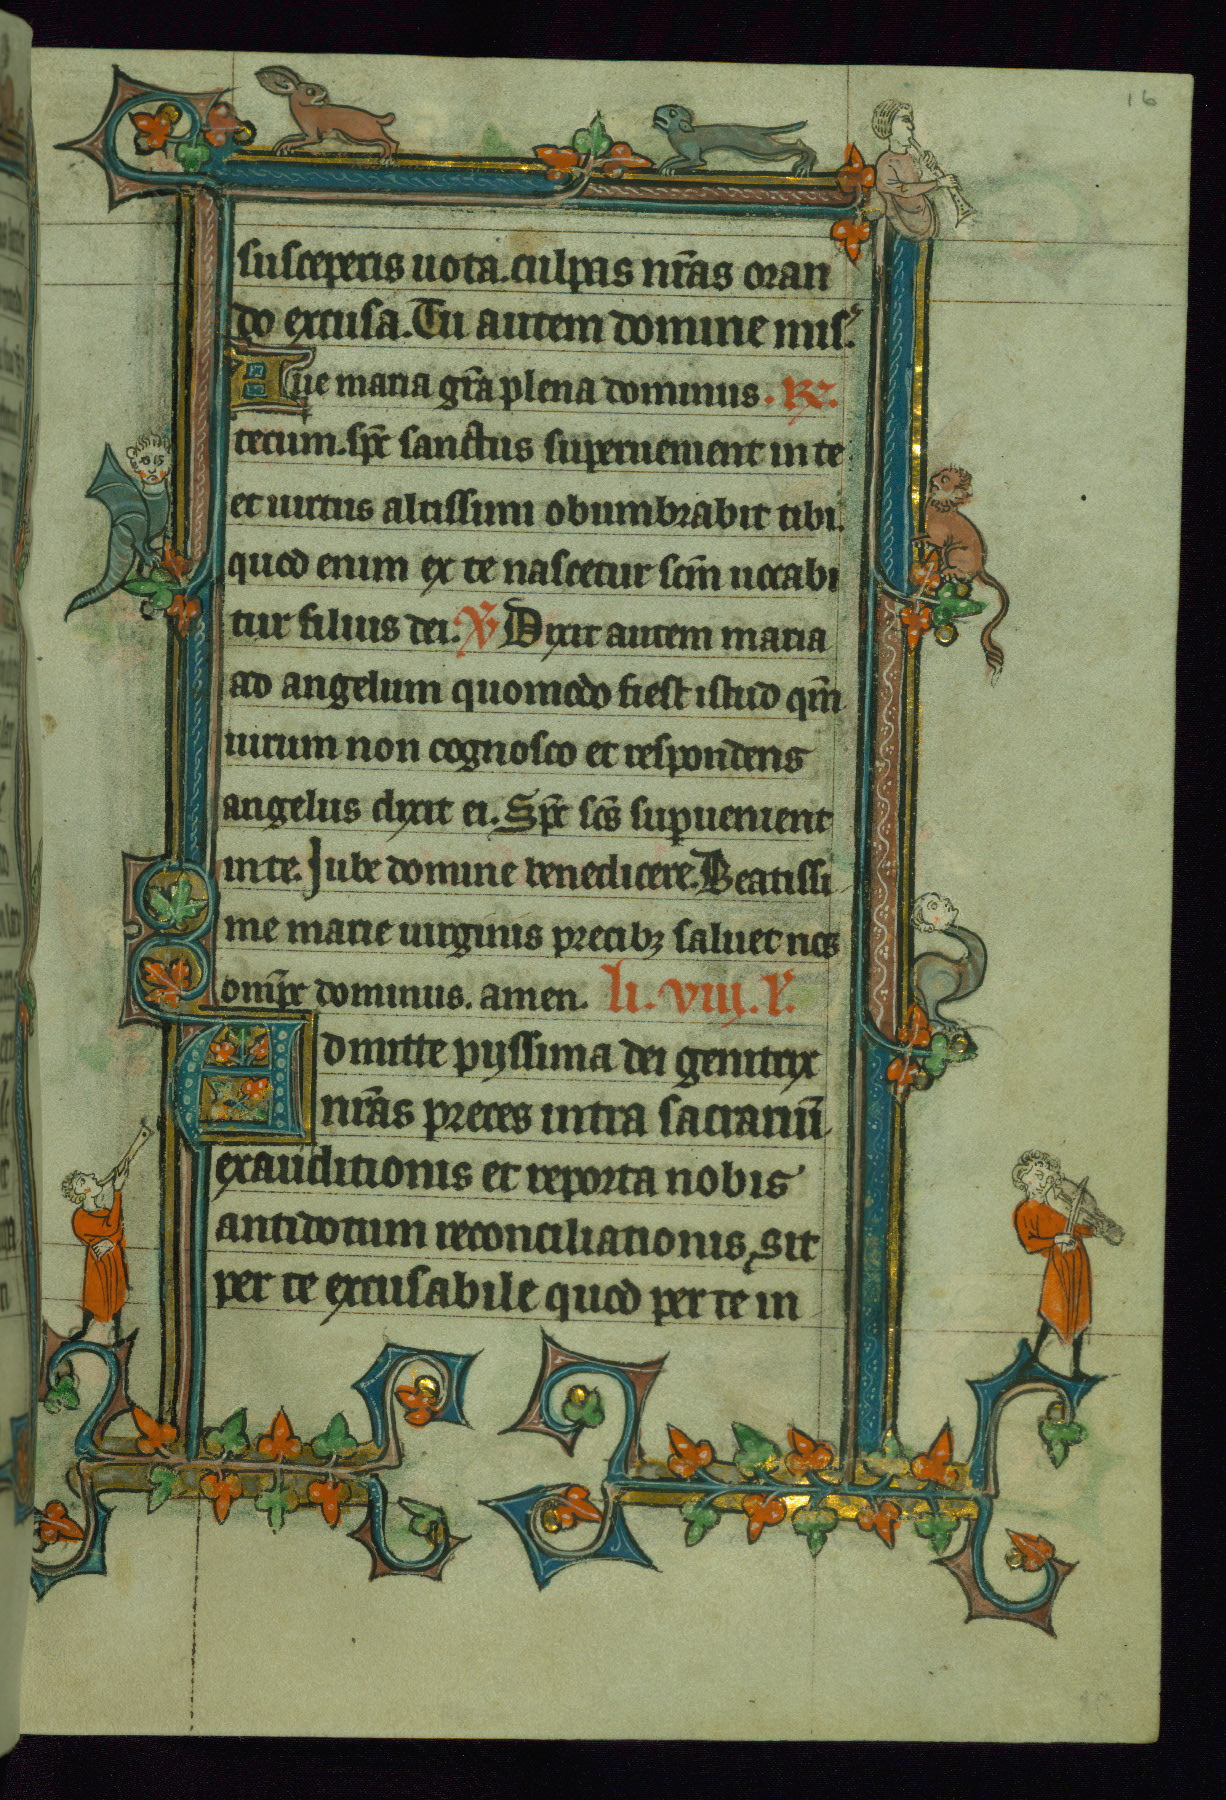 16
susceperis uota. culpas nr̄as oran
do excusa. Tu autem domine mis.
Aue maria gr̄a plena dominus. R.
tecum. sp̄c sanctus superuenient in te
et uirtus altissimi obumbrabit tibi.
quod enim ex te nascetur sc̄m uocabi
tur filius dei. V Dixit autem maria
ad angelum quomodo fiest istud qm̄
uirum non cognosco et respondens
angelus dixit ei. Sp̄c sc̄s supuenient
in te. Jube domine benedicere. Beatissi
me marie uirginis precibꝫ saluet nos
omīpr dominus. amen. li. viii. l'.
Admitte pijssima dei genitrix
nr̄as preces intra sacrariū
exauditionis et reporta nobis
antidotum reconciliationis, sit
per te excusabile quod per te in